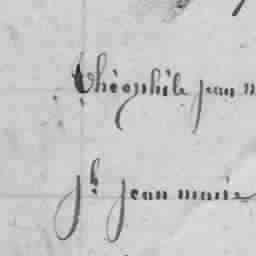 Théophile jean m
jh jean marie